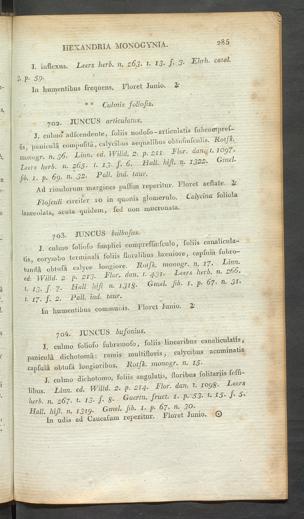 HEXANDRIA MONOGYNIA. 285
J. inflexus. Leers herb. n. 263. t. 13. f. 3. Ehrh. casal.
2. p. 59.
In humentibus frequens. Floret Junio. ♃
** Culmis foliosis.
702. JUNCUS articulatus.
J. culmo adscendente, foliis nodoso-articulatis subcompres-
sis, panicula composita, calycibus aequalibus obtusiusculis. Rotsk.
monogr. n. 36. Linn. ed. Willd. 2. p. 211. Flor. dan. t. 1097.
Leers herb. n. 265. t. 13. f. 6. Hall. hist. n. 1322. Gmel.
sib. 1. p. 69. n. 32. Pall. ind. taur.
Ad rivulorum margines passim reperitur. Floret aestate. ♃
Flosculi circiter 10 in quonis glomerulo. Calycina foliola
lanceolata, acuta quidem, sed non mucronata.
703. JUNCUS bulbosus.
J. culmo folioso simplici compressiusculo, foliis canalicula-
tis, corymbo terminali foliis floralibus breviore, capsula subro-
tunda obtusa calyce longiore. Rotsk. monogr. n. 17. Linn.
ed. Willd. 2. p. 213. Flor. dan. t. 431. Leers herb. n. 266.
t. 13. f. 7. Hall hist n. 1318. Gmel. sib. 1. p. 67. n. 31.
t. 17. f. 2. Pall. ind. taur.
In humentibus communis. Floret Junio. ♃
704. JUNCUS bufonius.
J. culmo folioso subramoso, foliis linearibus canaliculatis,
panicula dichotoma: ramis multifloris, calycibus acuminatis
capsula obtusa longioribus. Rotsk. monogr. n. 15.
J. culmo dichotomo, foliis angulatis, floribus solitariis sessi-
libus. Linn. ed. Willd. 2. p. 214. Flor. dan. t. 1098. Leers
herb. n. 267. t. 13. f. 8. Gaertn. fruct. 1. p. 53. t. 15. f. 5.
Hall. hist. n. 1319. Gmel. sib. 1. p. 67. n. 30.
In udis ad Caucasum reperitur. Floret Junio. ☉